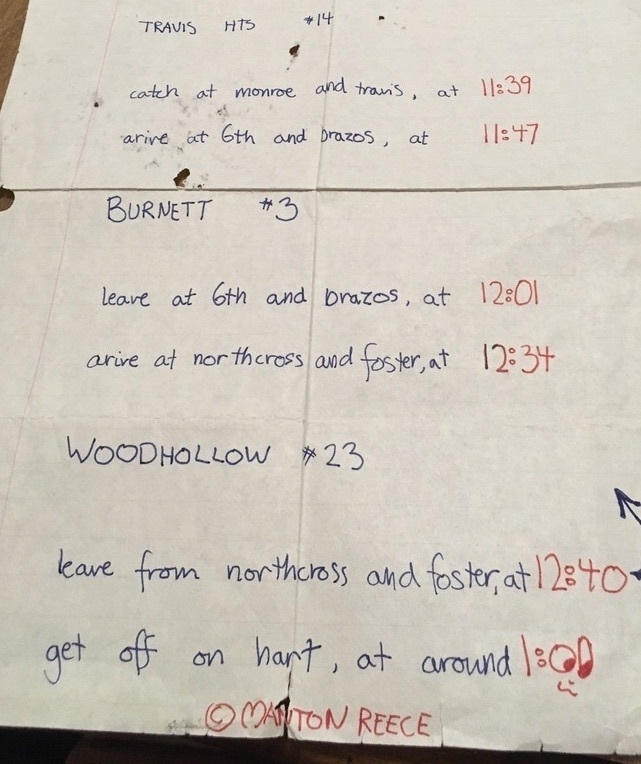 TRAVIS HTS #14
catch at monroe and travis, at 11:39
arive at 6th and brazos, at 11:47
BURNETT #3
leave at 6th and brazos, at 12:01
arive at northcross and foster, at 12:34
WOODHOLLOW #23
leave from northcross and foster, at 12:40
get off on hart, at around 1:00
© MANTON REECE